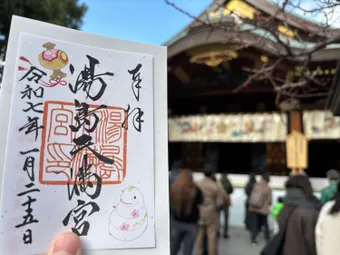 奉拝
湯島天満宮
湯島
宮印
令和七年一月二十五日